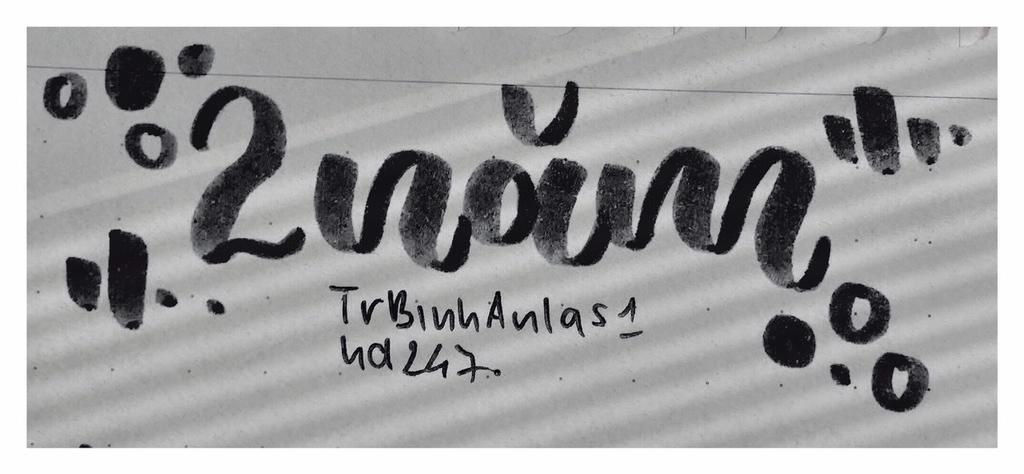 2 năm
TrBinhAnlas1
hd247.